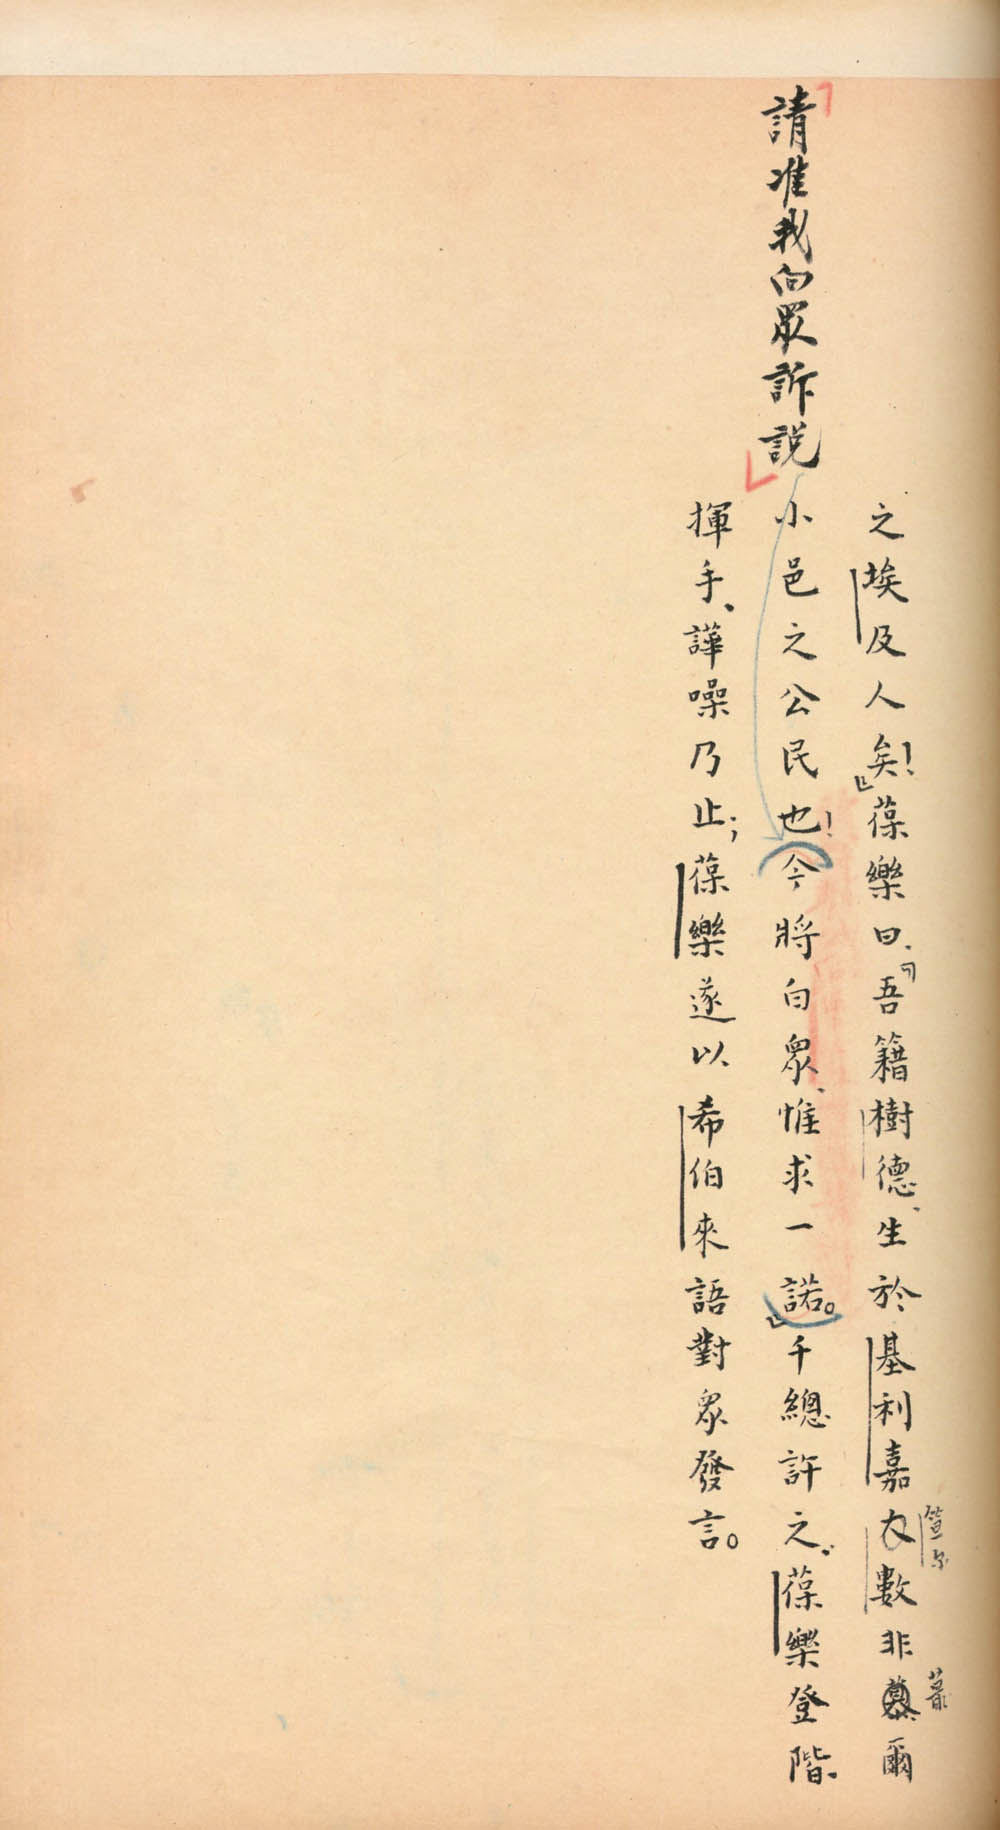 之埃及人矣！』葆樂曰、『吾籍樹德、生於基利嘉大數非蕞爾
蕞
請准我向眾訴說
小邑之公民也！今將白眾、惟求一諾。』千總許之、葆樂登階、
揮手、譁噪乃止；葆樂遂以希伯來語對眾發言。